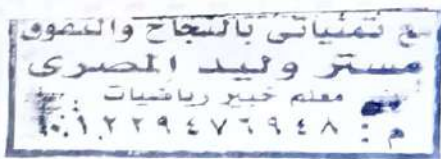 مع تمنياتى بالنجاح والتفوق
مستر وليد المصرى
معلم خبير رياضيات
م : ٠١٠٢٢٩٤٧٦٩٤٨